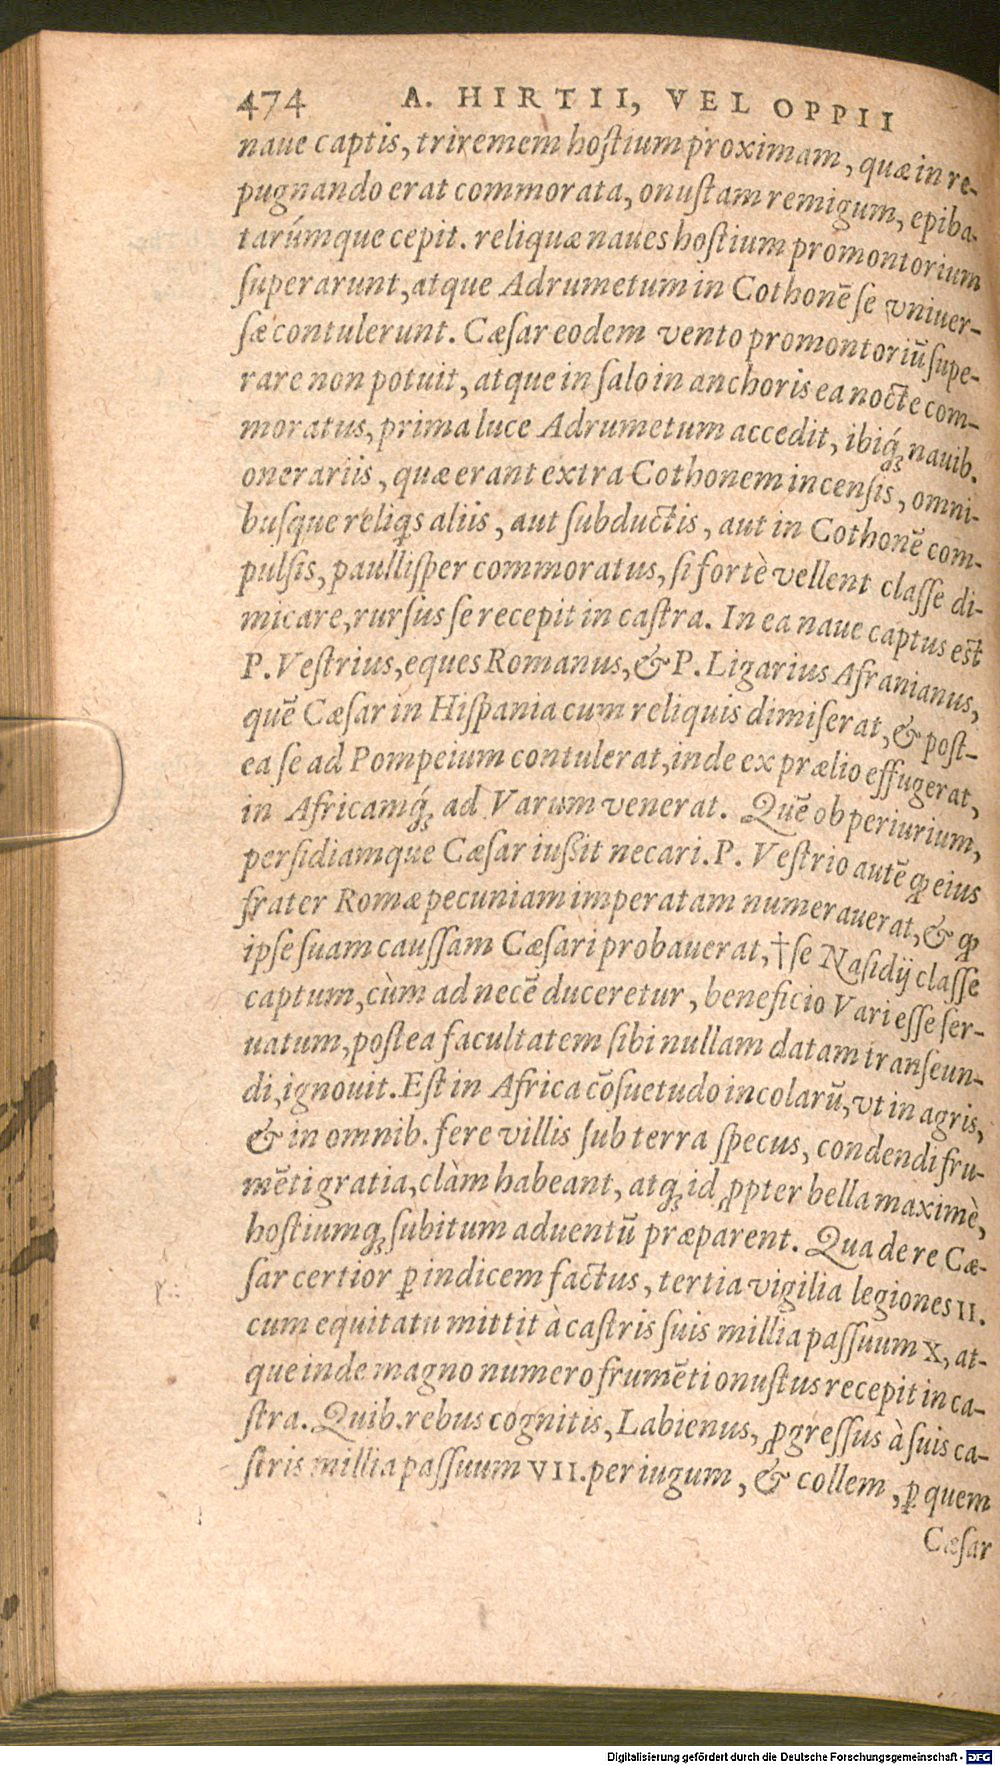 474 A. HIRTII, VEL OPPII
naue captis, triremem hoſtium proximam, quæ in re-
pugnando erat commorata, onuſtam remigum, epiba-
tarúmque cepit. reliquæ naues hoſtium promontorium
ſuperarunt, atque Adrumetum in Cothonē ſe vniuer-
ſæ contulerunt. Cæſar eodem vento promontoriū ſupe-
rare non potuit, atque in ſalo in anchoris ea nocte com-
moratus, prima luce Adrumetum accedit, ibiq́; nauib.
onerariis, quæ erant extra Cothonem incenſis, omni-
buſque reliqꝫ aliis, aut ſubductis, aut in Cothonē com-
pulſis, paulliſper commoratus, ſi fortè vellent claſſe di-
micare, rurſus ſe recepit in caſtra. In ea naue captus eſt
P. Veſtrius, eques Romanus, & P. Ligarius Afranianus,
quē Cæſar in Hiſpania cum reliquis dimiſerat, & poſt-
ea ſe ad Pompeium contulerat, inde ex prælio effugerat,
in Africamq́; ad Varum venerat. Quē ob periurium,
perſidiamque Cæſar iuſsit necari. P. Veſtrio autē ꝙ eius
frater Romæ pecuniam imperatam numerauerat, & ꝙ
ipſe ſuam cauſſam Cæſari probauerat, † ſe Naſidij claſſe
captum, cùm ad necē duceretur, beneficio Vari eſſe ſer-
uatum, poſtea facultatem ſibi nullam datam tranſeun-
di, ignouit. Eſt in Africa cōſuetudo incolarū, vt in agris,
& in omnib. fere villis ſub terra ſpecus, condendi fru-
mēti gratia, clàm habeant, atq; id ꝓpter bella maximè,
hoſtiumq; ſubitum aduentū præparent. Qua de re Cæ-
ſar certior ꝑ indicem factus, tertia vigilia legiones II.
cum equitatu mittit à caſtris ſuis millia paſſuum X, at-
que inde magno numero frumēti onuſtus recepit in ca-
ſtra. Quib. rebus cognitis, Labienus, ꝓgreſſus à ſuis ca-
ſtris millia paſſuum VII. per iugum, & collem, ꝑ quem
Cæſar
Digitalisierung gefördert durch die Deutsche Forschungsgemeinschaft - DFG